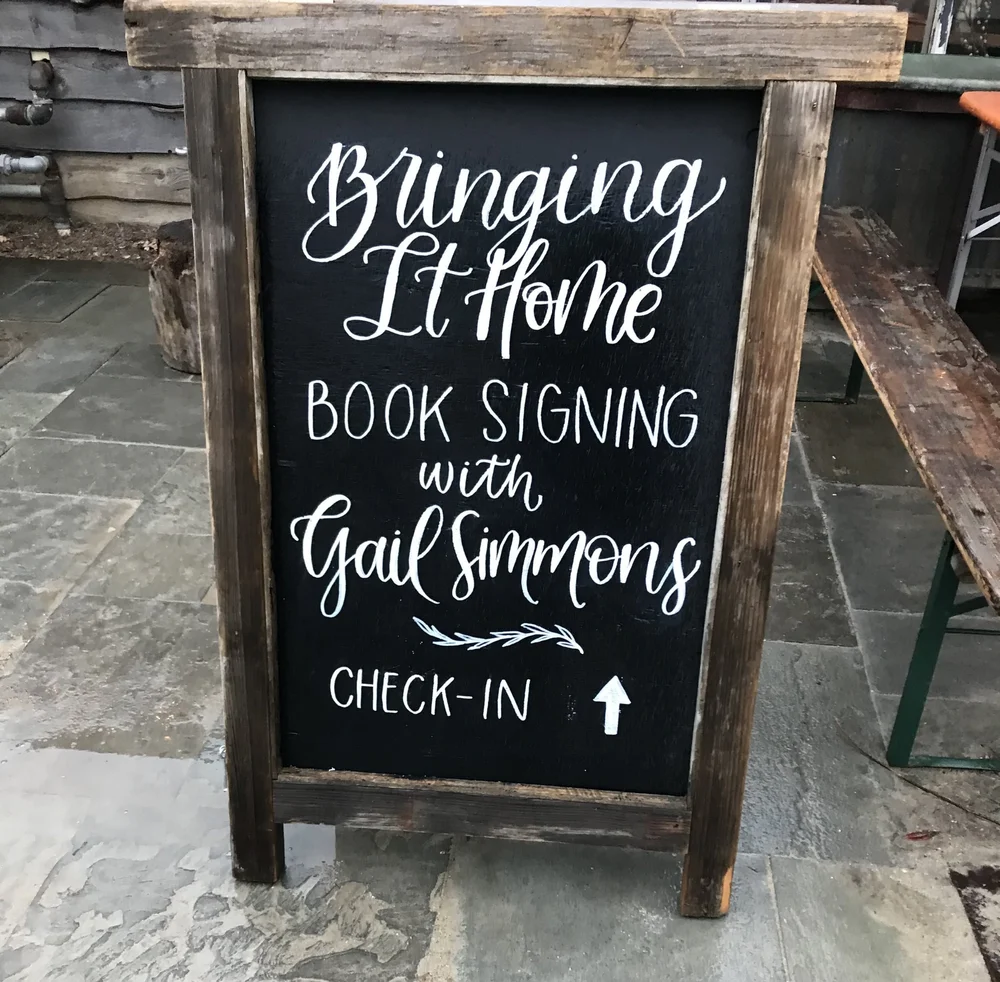 Bringing
It Home
BOOK SIGNING
with
Gail Simmons
CHECK-IN ↑